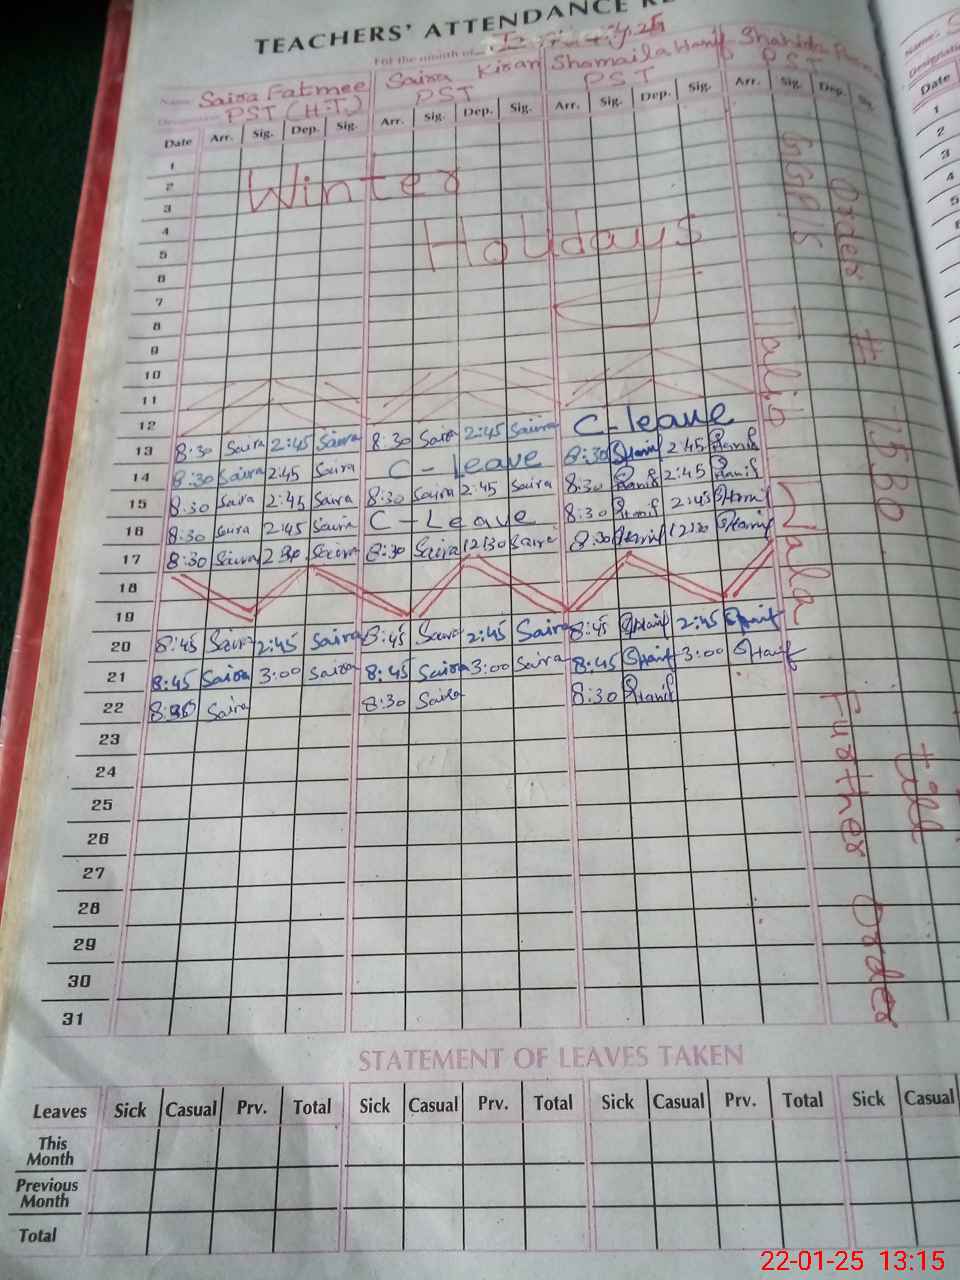 TEACHERS' ATTENDANCE
For the month of
Name Saira Fatmee Saira Kiran Shamaila Hanif Shahida
PST (H.T) PST PST PST
Date Arr. Sig. Dep. Sig. Arr. Sig. Dep. Sig. Arr. Sig. Dep. Sig. Arr. Sig. Dep. Sig.
1
2 Winter
3
4
5 Holidays
6
7
8
9
10
11
12 C-leave
13 8:30 Saira 2:45 Saira 8:30 Saira 2:45 Saira 8:30 SHanif 2:45 SHanif
14 8:30 Saira 2:45 Saira C-Leave 8:30 SHanif 2:45 SHanif
15 8:30 Saira 2:45 Saira 8:30 Saira 2:45 Saira 8:30 SHanif 2:45 SHanif
16 8:30 Saira 2:45 Saira C-Leave 8:30 SHanif 12:30 SHanif
17 8:30 Saira Saira 8:30 Saira 12:30 Saira
18
19
20 8:45 Saira 2:45 Saira 8:45 Saira 2:45 Saira 8:45 SHanif 2:45 SHanif
21 8:45 Saira 3:00 Saira 8:45 Saira 3:00 Saira 8:45 SHanif 3:00 SHanif
22 Saira 8:30 Saira 8:30 SHanif
23
24
25
26
27
28
29
30
31
Talib Wala
Order #
till
Further Order
STATEMENT OF LEAVES TAKEN
Leaves Sick Casual Prv. Total Sick Casual Prv. Total Sick Casual Prv. Total Sick Casual
This Month
Previous Month
Total
Name:
Date
1
2
3
4
5
22-01-25 13:15